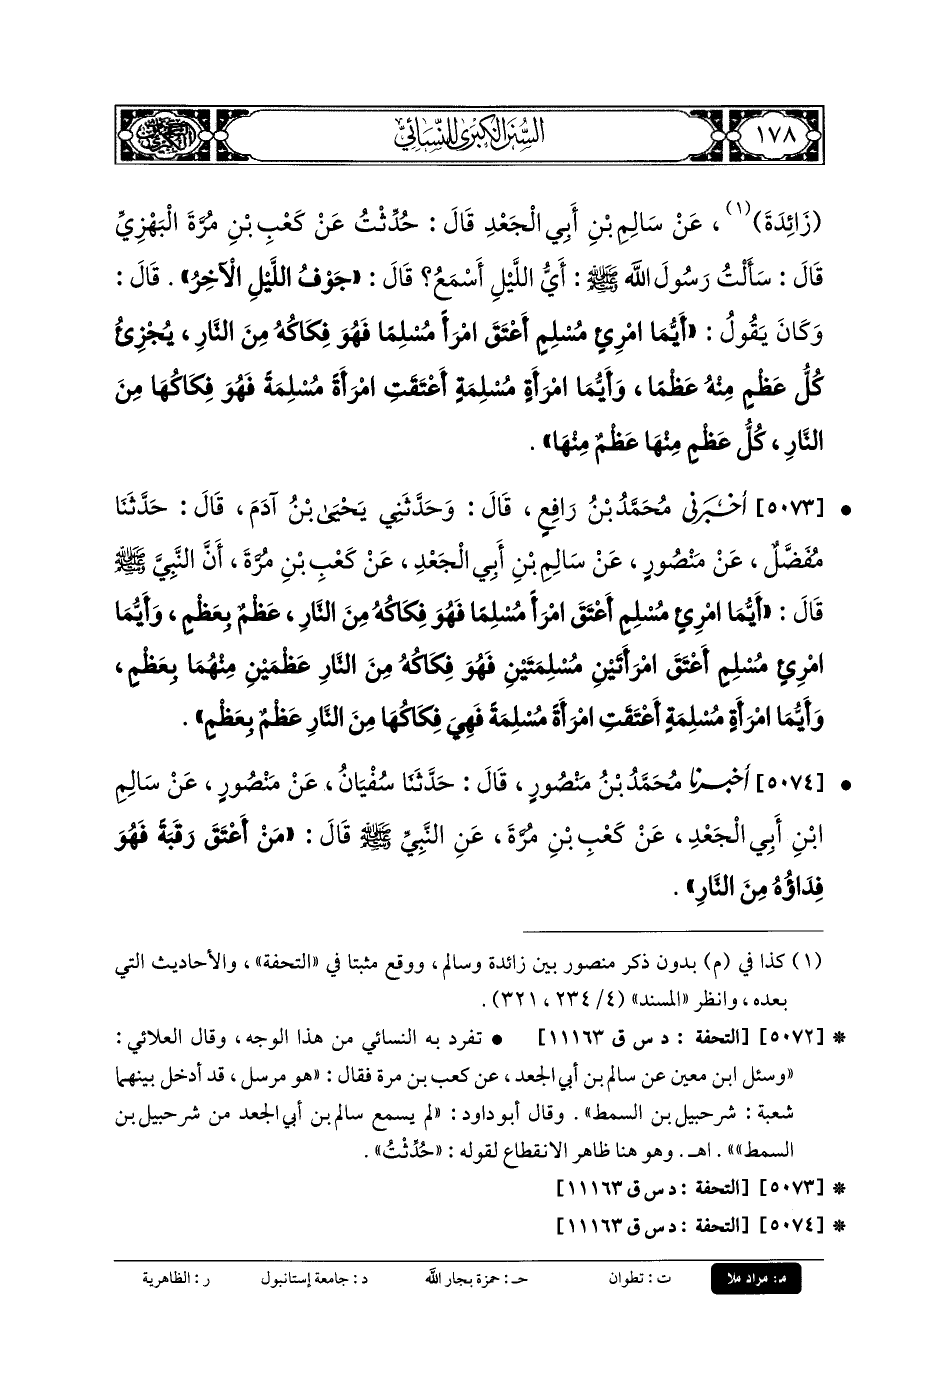 ١٧٨
السنن الكبرى للنسائي
(زَائِدَةَ)(١) ، عَنْ سَالِمِ بْنِ أَبِي الْجَعْدِ قَالَ : حُدِّثْتُ عَنْ كَعْبِ بْنِ مُرَّةَ الْبَهْزِيِّ
قَالَ : سَأَلْتُ رَسُولَ اللَّه ﷺ : أَيُّ اللَّيْلِ أَسْمَعُ؟ قَالَ : «جَوْفُ اللَّيْلِ الْآخِرُ» . قَالَ :
وَكَانَ يَقُولُ : «أَيُّمَا امْرِئٍ مُسْلِمٍ أَعْتَقَ امْرَأً مُسْلِمًا فَهُوَ فِكَاكُهُ مِنَ النَّارِ ، يُجْزِئُ
كُلُّ عَظْمٍ مِنْهُ عَظْمًا ، وَأَيُّمَا امْرَأَةٍ مُسْلِمَةٍ أَعْتَقَتِ امْرَأَةً مُسْلِمَةً فَهُوَ فِكَاكُهَا مِنَ
النَّارِ ، كُلُّ عَظْمٍ مِنْهَا عَظْمٌ مِنْهَا» .
• [٥٠٧٣] أخبرني مُحَمَّدُ بْنُ رَافِعٍ ، قَالَ : وَحَدَّثَنِي يَحْيَى بْنُ آدَمَ ، قَالَ : حَدَّثَنَا
مُفَضَّلٌ ، عَنْ مَنْصُورٍ ، عَنْ سَالِمِ بْنِ أَبِي الْجَعْدِ ، عَنْ كَعْبِ بْنِ مُرَّةَ ، أَنَّ النَّبِيَّ ﷺ
قَالَ : «أَيُّمَا امْرِئٍ مُسْلِمٍ أَعْتَقَ امْرَأً مُسْلِمًا فَهُوَ فِكَاكُهُ مِنَ النَّارِ ، عَظْمٌ بِعَظْمٍ ، وَأَيُّمَا
امْرِئٍ مُسْلِمٍ أَعْتَقَ امْرَأَتَيْنِ مُسْلِمَتَيْنِ فَهُوَ فِكَاكُهُ مِنَ النَّارِ عَظْمَيْنِ مِنْهُمَا بِعَظْمٍ ،
وَأَيُّمَا امْرَأَةٍ مُسْلِمَةٍ أَعْتَقَتِ امْرَأَةً مُسْلِمَةً فَهِيَ فِكَاكُهَا مِنَ النَّارِ عَظْمٌ بِعَظْمٍ» .
• [٥٠٧٤] أخبرنا مُحَمَّدُ بْنُ مَنْصُورٍ ، قَالَ : حَدَّثَنَا سُفْيَانُ ، عَنْ مَنْصُورٍ ، عَنْ سَالِمِ
ابْنِ أَبِي الْجَعْدِ ، عَنْ كَعْبِ بْنِ مُرَّةَ ، عَنِ النَّبِيِّ ﷺ قَالَ : «مَنْ أَعْتَقَ رَقَبَةً فَهُوَ
فِدَاؤُهُ مِنَ النَّارِ» .
(١) كذا في (م) بدون ذكر منصور بين زائدة وسالم ، ووقع مثبتا في «التحفة» ، والأحاديث التي
بعده ، وانظر «المسند» (٤/ ٢٣٤ ، ٣٢١) .
* [٥٠٧٢] [التحفة : د س ق ١١١٦٣] • تفرد به النسائي من هذا الوجه ، وقال العلائي :
«وسئل ابن معين عن سالم بن أبي الجعد ، عن كعب بن مرة فقال : «هو مرسل ، قد أدخل بينهما
شعبة : شرحبيل بن السمط» . وقال أبو داود : «لم يسمع سالم بن أبي الجعد من شرحبيل بن
السمط»» . اهـ . وهو هنا ظاهر الانقطاع لقوله : «حُدِّثْتُ» .
* [٥٠٧٣] [التحفة : د س ق ١١١٦٣]
* [٥٠٧٤] [التحفة : د س ق ١١١٦٣]
م: مراد ملا ت : تطوان حـ : حمزة بجار اللَّه د : جامعة إستانبول ر : الظاهرية